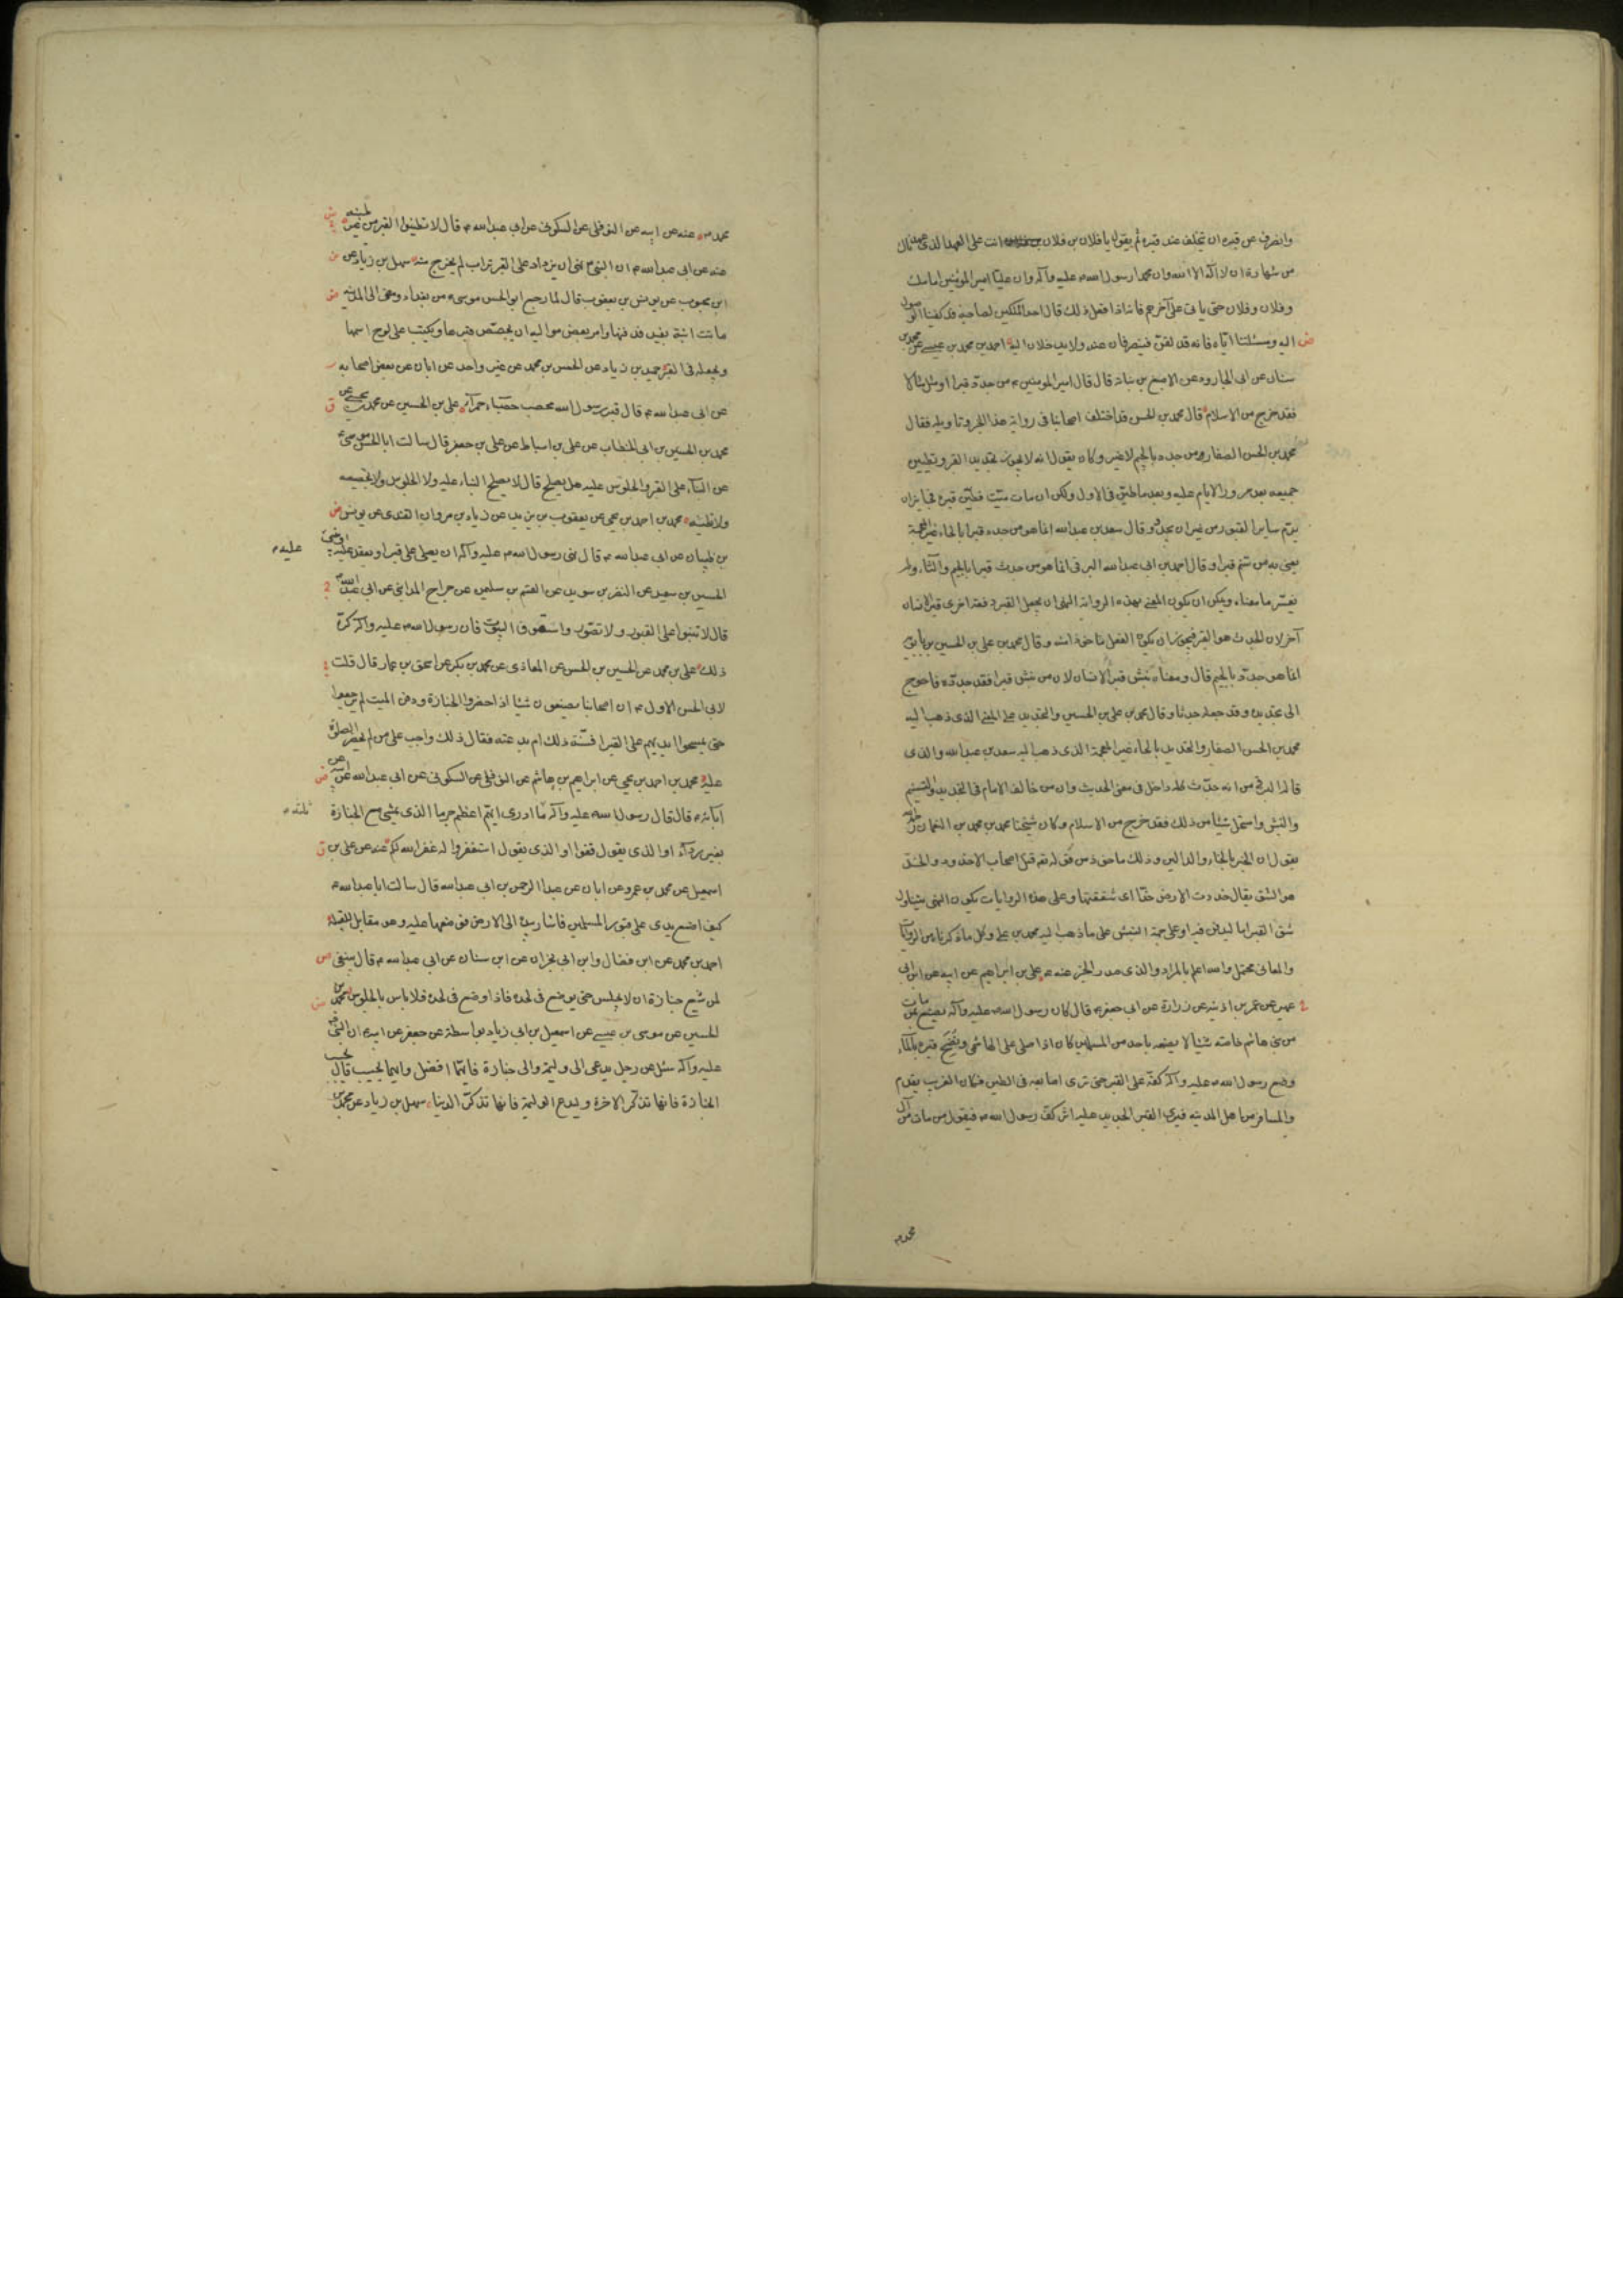 وانصرف عن قبره ان يتخلف عند قبره ثم يقول يا فلان بن فلان انت على العهد الذى عهدناك
من شهادة ان لا اله الا الله وان محمدا رسول الله ص عليه وآله وان عليا امير المؤمنين امامك
وفلان وفلان حتى ياتى على آخرهم فانه اذا فعل ذلك قال احد الملكين لصاحبه قد كفينا الوصول
اليه ومسئلتنا اياه فانه قد لقن فينصرفان عنه ولا يدخلان اليه احمد بن محمد بن عيسى عن محمد بن
سنان عن ابى الجارود عن الاصبغ بن نباته قال قال امير المؤمنين ع من جدد قبرا او مثل مثالا
فقد خرج من الاسلام قال محمد بن الحسن قد اختلف اصحابنا فى رواية هذا الخبر وتاويله فقال
محمد بن الحسن الصفار من جدد بالجيم لا غير وكان يقول انه لا يجوز تجديد القبر وتطيين
جميعه بعد مرور الايام عليه وبعد ما طين فى الاول ولكن ان مات ميت فطين قبره فجايز ان
يرم ساير القبور من غير ان يجدد وقال سعد بن عبد الله انما هو من حدد قبرا بالحاء غير المعجمة
يعنى به من سنم قبرا وقال احمد بن ابى عبد الله البرقى انما هو من جدث قبرا بالجيم والثاء ولم
يفسر ما معناه ويمكن ان يكون المعنى بهذه الرواية النهى ان يجعل القبر دفعة اخرى قبرا لانسان
آخر لان الجدث هو القبر فيجوز ان يكون الفعل ماخوذا منه وقال محمد بن على بن الحسين بن بابويه
انما هو جدد بالجيم قال ومعناه نبش قبرا لانسان لان من نبش قبرا فقد جدده فاحوج
الى تجديده وقد جعله جدثا وقال محمد بن على بن الحسين والتجديد على المعنى الذى ذهب اليه
محمد بن الحسن الصفار والتحديد بالحاء غير المعجمة الذى ذهب اليه سعد بن عبد الله والذى
قاله البرقى من انه جدث كله داخل فى معنى الحديث وان من خالف الامام فى التجديد والتسنيم
والنبش واستحل شيئا من ذلك فقد خرج من الاسلام وكان شيخنا محمد بن محمد بن النعمان رحمه الله
يقول ان الخبر بالخاء والدالين وذلك ماخوذ من قوله تع قتل اصحاب الاخدود والخد
هو الشق يقال خددت الارض خدا اى شققتها وعلى هذه الروايات يكون النهى يتناول
شق القبر اما ليدفن فيه او على جهة النبش على ما ذهب اليه محمد بن على وكل ما ذكرناه من الروايات
والمعانى محتمل والله اعلم بالمراد والذى صدر الخبر عنه ع على بن ابراهيم عن ابيه عن ابن ابى
عمير عن عمر بن اذينه عن زرارة عن ابى جعفر ع قال كان رسول الله ص عليه وآله يصنع بمن مات
من بنى هاشم خاصة شيئا لا يصنعه باحد من المسلمين كان اذا صلى على الهاشمى ونضح قبره بالماء
وضع رسول الله ص عليه وآله كفه على القبر حتى ترى اصابعه فى الطين فكان الغريب يقدم
والمسافر من اهل المدينه فيرى القبر الجديد عليه اثر كف رسول الله ص فيقول من مات من آل
محمد ص
محمد ص عنه عن ابيه عن النوفلى عن السكونى عن ابى عبد الله ع قال لا تطينوا القبر من غير طينه
عنه عن ابى عبد الله ع ان النبى ص نهى ان يزداد على القبر تراب لم يخرج منه سهل بن زياد عن
ابن محبوب عن يونس بن يعقوب قال لما رجع ابو الحسن موسى ع من بغداد ومضى الى المدينه
ماتت ابنة بفيد فدفنها وامر بعض مواليه ان يجصص قبرها ويكتب على لوح اسمها
ويجعله فى القبر حميد بن زياد عن الحسن بن محمد عن غير واحد عن ابان عن بعض اصحابه
عن ابى عبد الله ع قال قبر رسول الله محصب حصباء حمراء على بن الحسين عن محمد بن يحيى عن
محمد بن الحسين بن ابى الخطاب عن على بن اسباط عن على بن جعفر قال سالت ابا الحسن موسى ع
عن البناء على القبر والجلوس عليه هل يصلح قال لا يصلح البناء عليه ولا الجلوس ولا تجصيصه
ولا تطيينه محمد بن احمد بن يحيى عن يعقوب بن يزيد عن زياد بن مروان القندى عن يونس
بن ظبيان عن ابى عبد الله ع قال نهى رسول الله ص عليه وآله ان يصلى على قبر او يقعد عليه او يبنى
عليه
الحسين بن سعيد عن النضر بن سويد عن القسم بن سليمن عن جراح المداينى عن ابى عبد الله ع
قال لا تبنوا على القبور ولا تصوروا سقوف البيوت فان رسول الله ص عليه وآله كره
ذلك على بن محمد عن الحسين بن الحسن عن المعاذى عن محمد بن بكر عن اسحق بن عمار قال قلت
لابى الحسن الاول ع ان اصحابنا يصنعون شيئا اذا حضروا الجنازة ودفن الميت لم يرجعوا
حتى يمسحوا ايديهم على القبر افسنة ذلك ام بدعته فقال ذلك واجب على من لم يحضر الصلوة
عليه محمد بن احمد بن يحيى عن ابراهيم بن هاشم عن النوفلى عن السكونى عن ابى عبد الله عن ابيه عن
آبائه ع قال قال رسول الله ص عليه وآله ما ادرى ايهم اعظم جرما الذى يمشى مع الجنازة
ثلثه
بغير رداء او الذى يقول قفوا او الذى يقول استغفروا له غفر الله لكم عنه عن على بن
اسمعيل عن محمد بن عمرو عن ابان عن عبد الرحمن بن ابى عبد الله قال سالت ابا عبد الله ع
كيف اضع يدى على قبور المسلمين فاشار بيده الى الارض فوضعها عليه وهو مقابل القبله
احمد بن محمد عن ابن فضال وابن ابى نجران عن ابن سنان عن ابى عبد الله ع قال ينبغى
لمن شيع جنازة ان لا يجلس حتى يوضع فى لحده فاذا وضع فى لحده فلا باس بالجلوس محمد بن
الحسين عن موسى بن عيسى عن اسمعيل بن ابى زياد بواسطة عن جعفر عن ابيه ع ان النبى ص
عليه وآله سئل عن رجل يدعى الى وليمة والى جنازة فايهما افضل وايهما يجيب قال يجيب
الجنازة فانها تذكر الاخرة وليدع الوليمة فانها تذكر الدنيا سهل بن زياد عن محمد بن